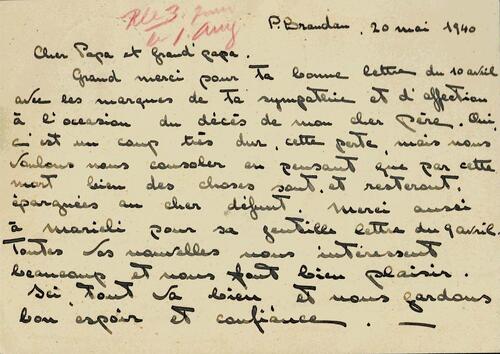 Rée 3. Juin
le 1. Aug
P. Brandan, 20 mai 1940
Cher Papa et Grand'papa.
Grand merci pour ta bonne lettre du 10 avril
avec les marques de ta sympathie et d'affection
à l'occasion du décès de mon cher père. Oui
c'est un coup très dur, cette perte, mais nous
voulons nous consoler en pensant que par cette
mort bien des choses sont, et resteront,
épargnées au cher défunt. Merci aussi
à Marichi pour sa gentille lettre du 9 avril.
Toutes vos nouvelles nous intéressent
beaucoup et nous font bien plaisir.
Ici tout va bien et nous gardons
bon espoir et confiance. —